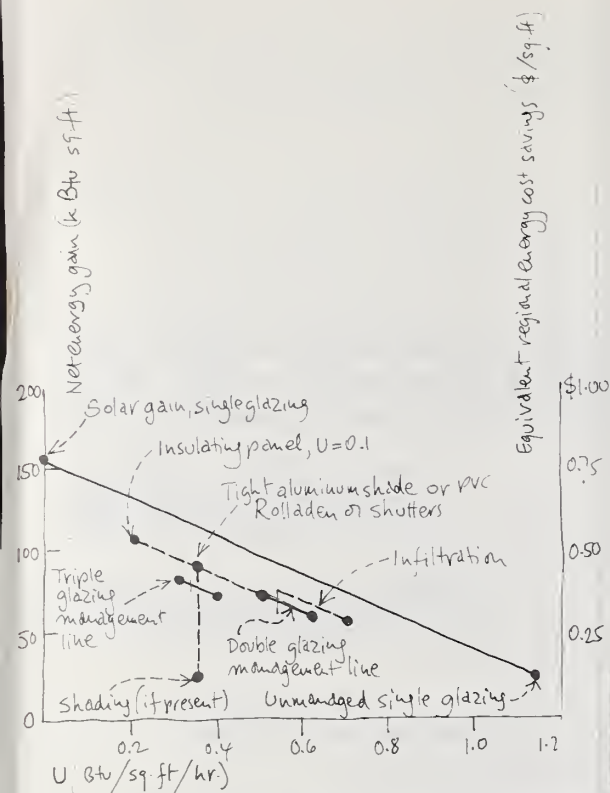 Net energy gain (k Btu sq.ft.)
Equivalent regional energy cost savings $/sq.ft)
200
150
100
50
0
$1.00
0.75
0.50
0.25
Solar gain, single glazing
Insulating panel, U=0.1
Tight aluminum shade or PVC
Rolladen or shutters
Infiltration
Triple
glazing
management
line
Double glazing
management line
Shading (if present)
Unmanaged single glazing
0.2
0.4
0.6
0.8
1.0
1.2
U Btu/sq.ft/hr.)